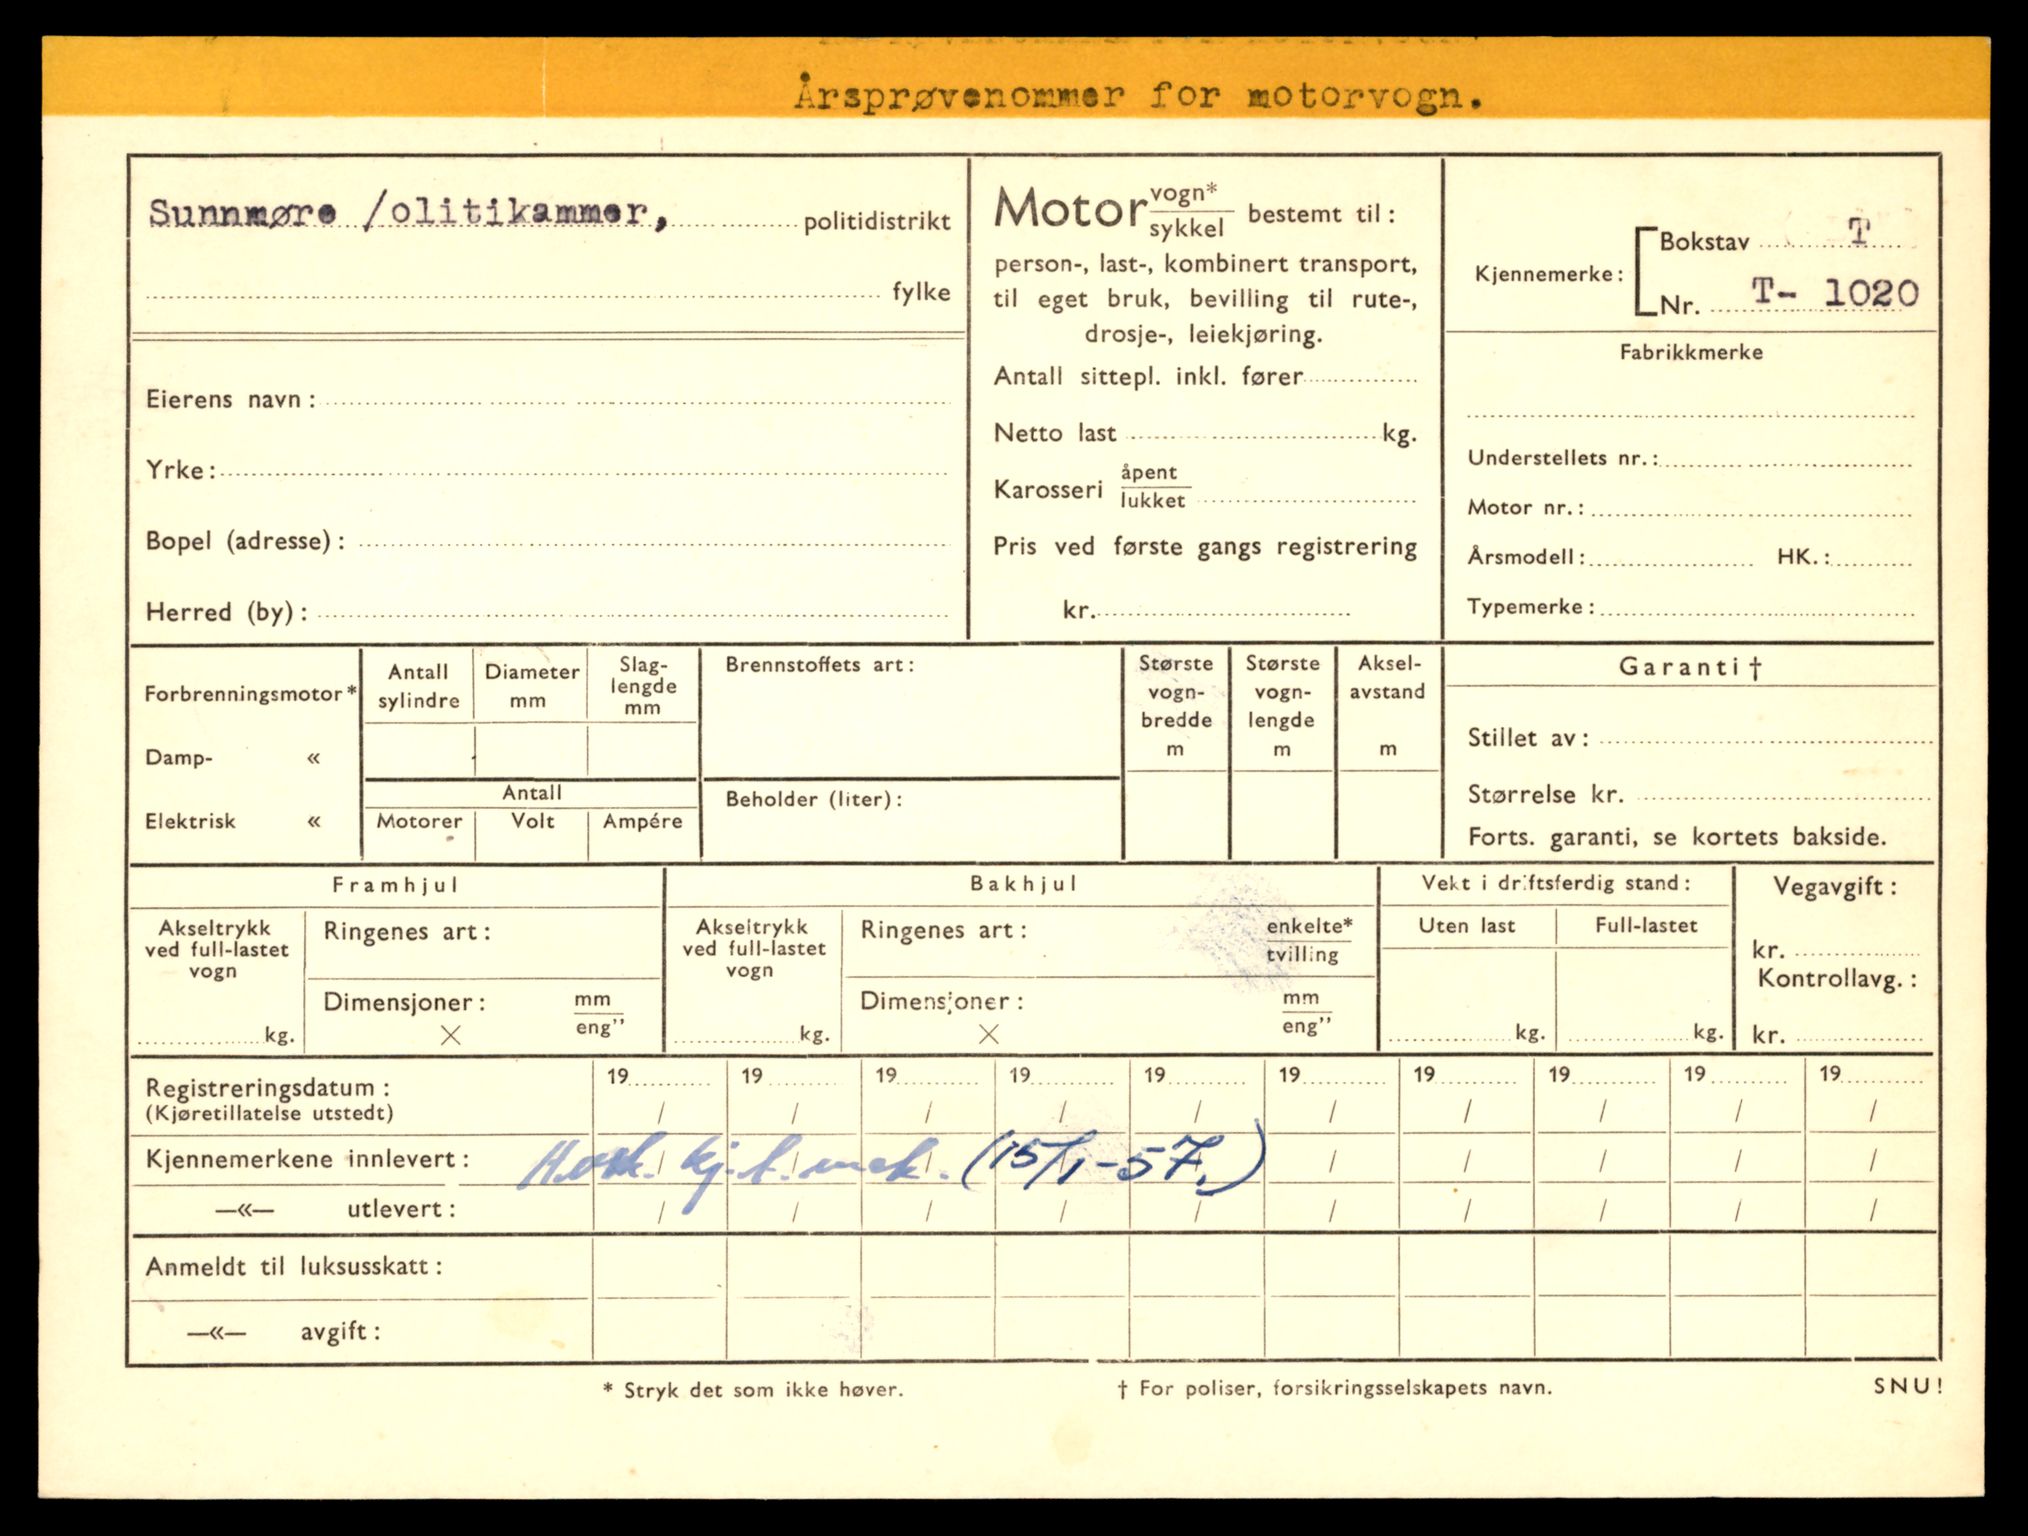 Årsprøvenommer for motorvogn.
Sunnmøre /olitikammer, politidistrikt
fylke
Eierens navn:
Yrke:
Bopel (adresse):
Herred (by):
Motor vogn* / sykkel bestemt til:
person-, last-, kombinert transport,
til eget bruk, bevilling til rute-,
drosje-, leiekjøring.
Antall sittepl. inkl. fører
Netto last kg.
Karosseri åpent / lukket
Pris ved første gangs registrering
kr.
Kjennemerke:
Bokstav T
Nr. T- 1020
Fabrikkmerke
Understellets nr.:
Motor nr.:
Årsmodell: HK.:
Typemerke:
Forbrenningsmotor*
Damp- «
Elektrisk «
Antall sylindre
Diameter mm
Slag-
lengde
mm
Antall
Motorer Volt Ampére
Brennstoffets art:
Beholder (liter):
Største
vogn-
bredde
m
Største
vogn-
lengde
m
Aksel-
avstand
m
Garanti †
Stillet av:
Størrelse kr.
Forts. garanti, se kortets bakside.
Framhjul
Akseltrykk
ved full-lastet
vogn
kg.
Ringenes art:
Dimensjoner: mm / eng”
×
Bakhjul
Akseltrykk
ved full-lastet
vogn
kg.
Ringenes art: enkelte* / tvilling
Dimensjoner: mm / eng”
×
Vekt i driftsferdig stand:
Uten last Full-lastet
kg. kg.
Vegavgift:
kr.
Kontrollavg.:
kr.
Registreringsdatum: 19 19 19 19 19 19 19 19 19 19
(Kjøretillatelse utstedt) / / / / / / / / / /
Kjennemerkene innlevert: kj.t. (15/1-57.)
—«— utlevert: / / / / / / / / / /
Anmeldt til luksusskatt:
—«— avgift:
* Stryk det som ikke høver. † For poliser, forsikringsselskapets navn. SNU!